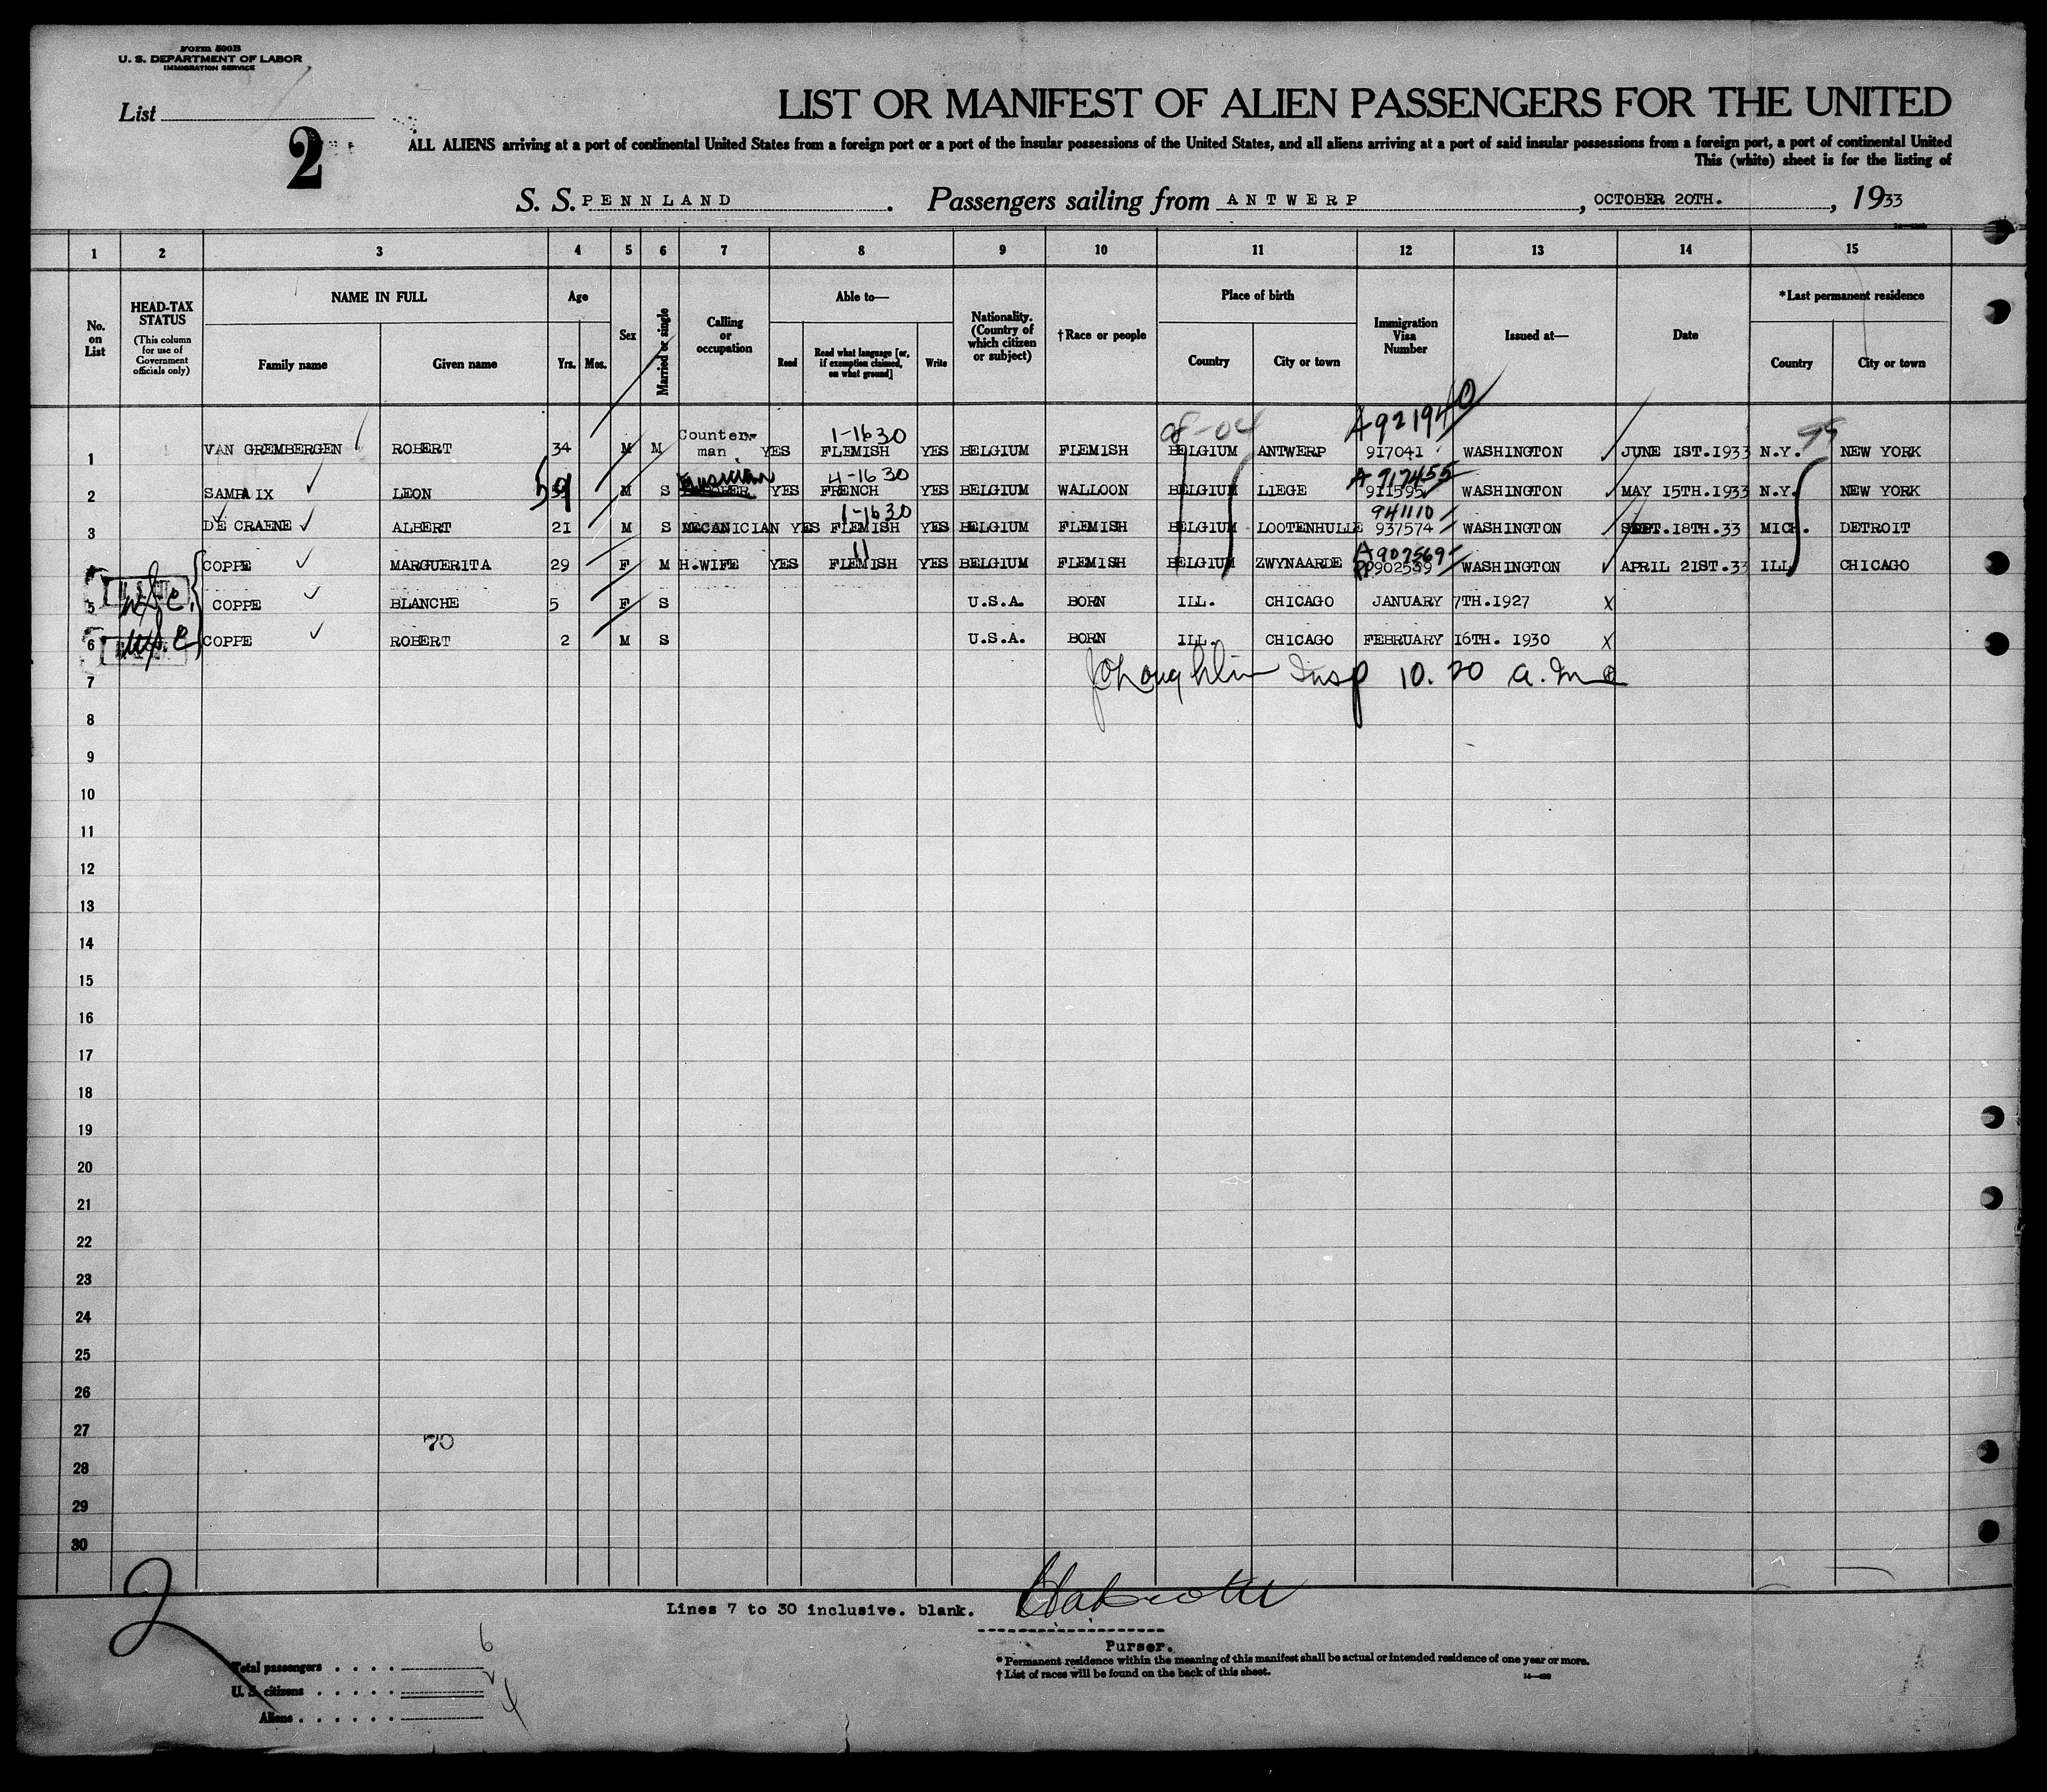 Form 500B
U. S. DEPARTMENT OF LABOR
IMMIGRATION SERVICE
List
2
LIST OR MANIFEST OF ALIEN PASSENGERS FOR THE UNITED
ALL ALIENS arriving at a port of continental United States from a foreign port or a port of the insular possessions of the United States, and all aliens arriving at a port of said insular possessions from a foreign port, a port of continental United
This (white) sheet is for the listing of
S. S. PENNLAND. Passengers sailing from ANTWERP, OCTOBER 20TH., 1933
1 2 3 4 5 6 7 8 9 10 11 12 13 14 15
No. on List
HEAD-TAX STATUS
(This column for use of Government officials only)
NAME IN FULL
Family name
Given name
Age
Yrs. Mos.
Sex
Married or single
Calling or occupation
Able to—
Read
Read what language [or, if exemption claimed, on what ground]
Write
Nationality. (Country of which citizen or subject)
†Race or people
Place of birth
Country
City or town
Immigration Visa Number
Issued at—
Date
*Last permanent residence
Country
City or town
1-1630 08-04 A921940 95
1 VAN GREMBERGEN ROBERT 34 M M Counter-man. YES FLEMISH YES BELGIUM FLEMISH BELGIUM ANTWERP 917041 WASHINGTON JUNE 1ST.1933 N.Y. NEW YORK
Musician 4-1630 A917455
2 SAMPAIX LEON 59 M S YES FRENCH YES BELGIUM WALLOON BELGIUM LIEGE 911595 WASHINGTON MAY 15TH.1933 N.Y. NEW YORK
1-1630 941110
3 DE CRAENE ALBERT 21 M S MECANICIAN YES FLEMISH YES BELGIUM FLEMISH BELGIUM LOOTENHULLE 937574 WASHINGTON SEPT.18TH.33 MICH. DETROIT
11 A907569
4 COPPE MARGUERITA 29 F M H.WIFE YES FLEMISH YES BELGIUM FLEMISH BELGIUM ZWYNAARDE 902539 WASHINGTON APRIL 21ST.33 ILL. CHICAGO
5 COPPE BLANCHE 5 F S U.S.A. BORN ILL. CHICAGO JANUARY 7TH.1927 X
6 COPPE ROBERT 2 M S U.S.A. BORN ILL. CHICAGO FEBRUARY 16TH. 1930 X
7 Insp 10.20 a.m.
8
9
10
11
12
13
14
15
16
17
18
19
20
21
22
23
24
25
26
27
70
28
29
30
2
Lines 7 to 30 inclusive. blank.
Purser.
Total passengers . . . . 6
U. S. citizens . . . . . 2
Aliens . . . . . . 4
*Permanent residence within the meaning of this manifest shall be actual or intended residence of one year or more.
†List of races will be found on the back of this sheet.